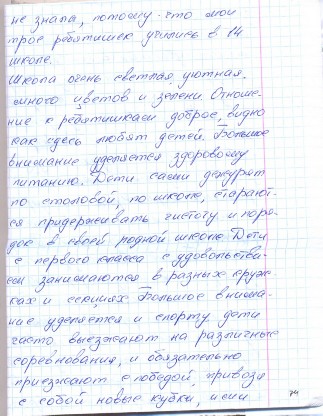 не знала, потому-что мои
трое ребятишек учились в 14
школе.
Школа очень светлая, уютная.
много цветов и зелени. Отноше-
ние к ребятишкам доброе, видно
как здесь любят детей. Большое
внимание уделяется здоровому
питанию. Дети сами дежурят
по столовой, по школе, старают-
ся придерживать чистоту и поря-
док в своей родной школе. Дети
с первого класса с удовольстви-
ем занимаются в разных круж-
ках и секциях. Большое внима-
ние уделяется и спорту дети
часто выезжают на различные
соревнования, и обязательно
приезжают с победой, привозя
с собой новые кубки, и